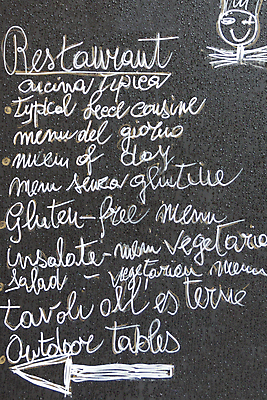 Restaurant
cucina tipica
typical deed cousine
menu del giorno
mieni of day
menu senza glutine
Gluten-free menu
insalate-menu vegetaria
salad - vegetarian menus
tavoli all esterne
Outdoor tables